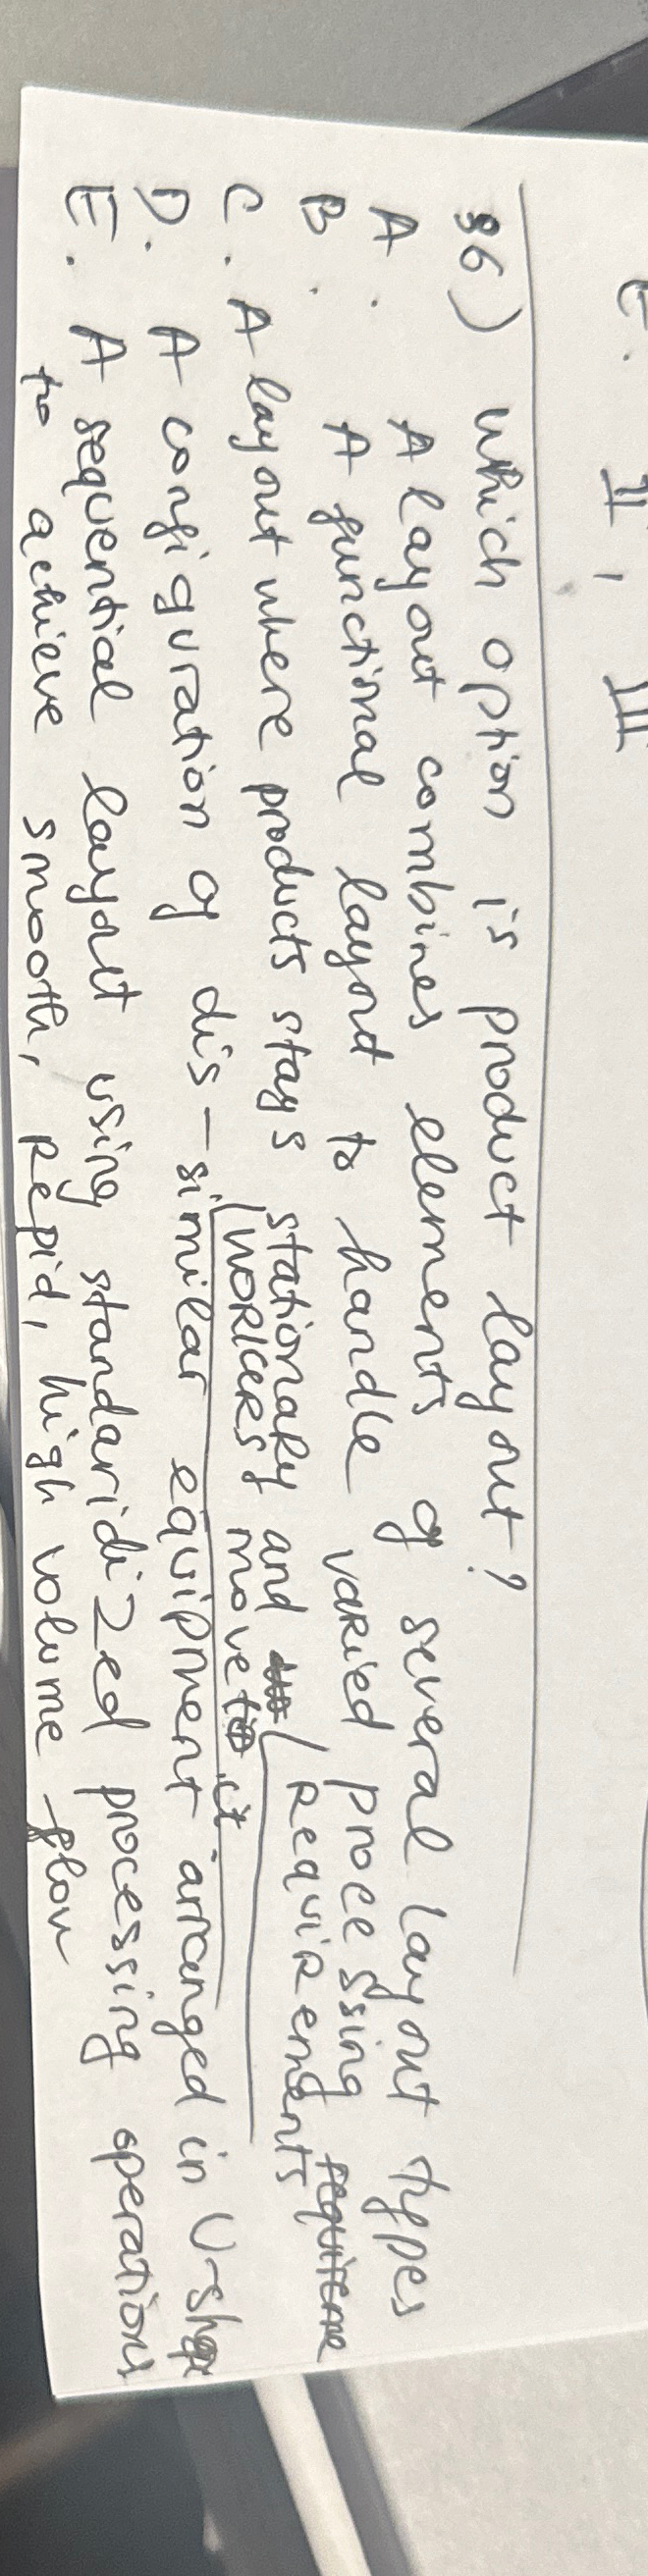 E. II, III
36) which option is product layout?
A. A layout combines elements of several layout types
B. A functional layout to handle varied processing requireme
requirements
C. A layout where products stays stationary and
workers move it
D. A configuration of dis-similar equipment arranged in U-shape
E. A sequential layout using standaridized processing operations
to achieve smooth, repid, high volume flow